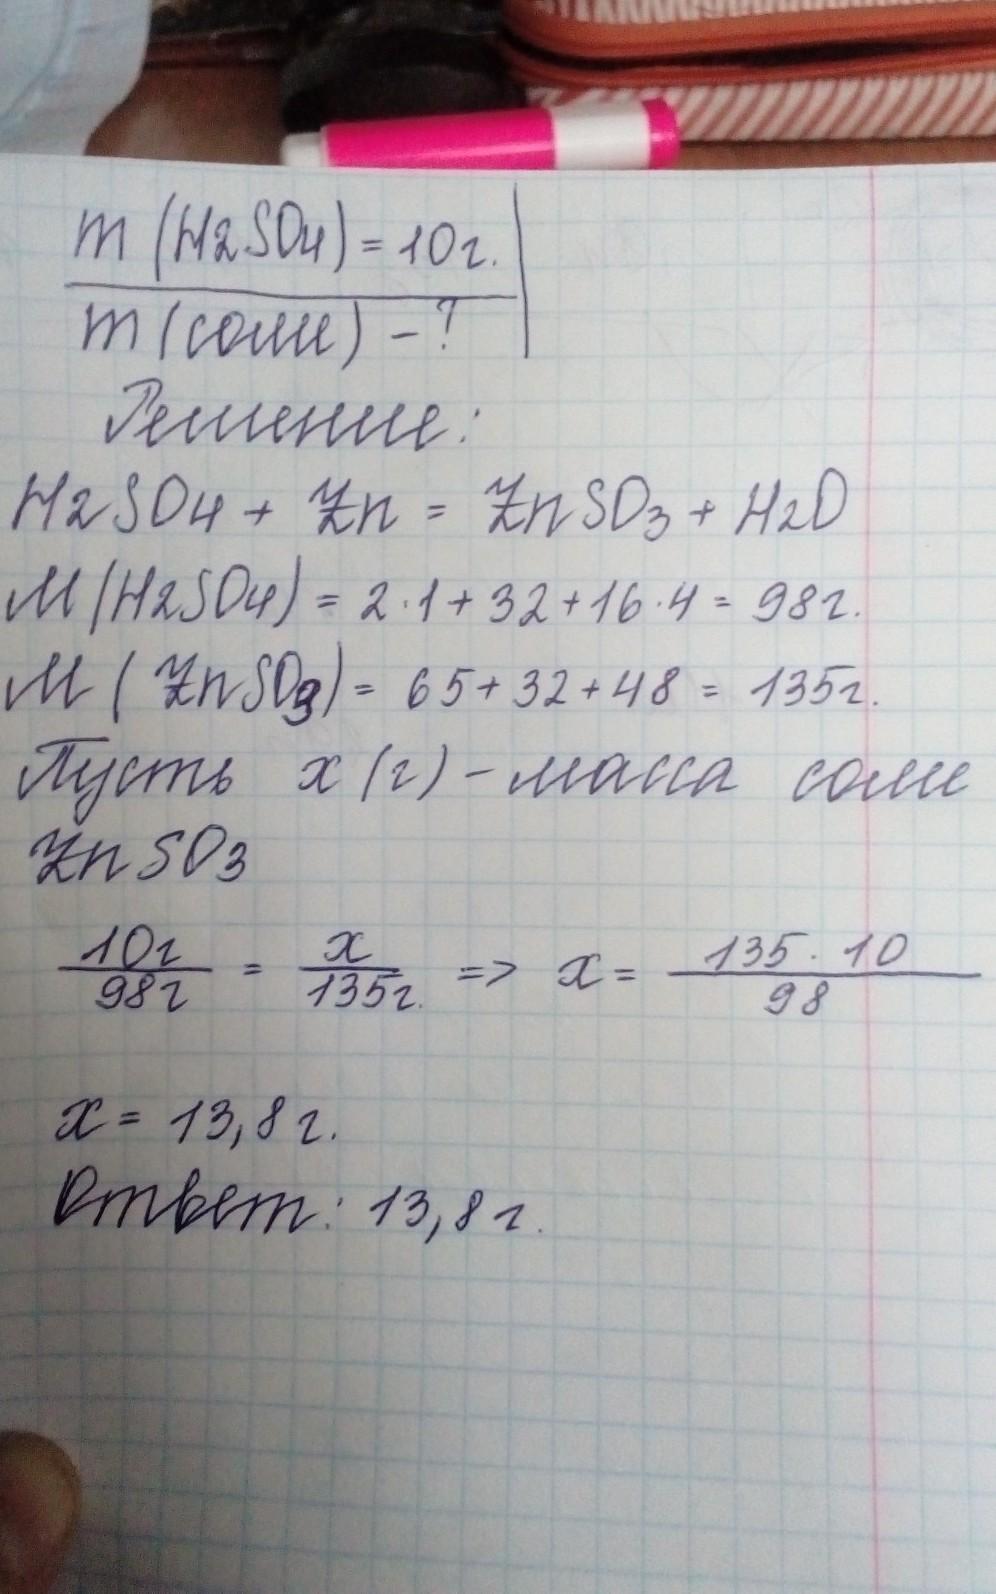 m (H2SO4) = 10г.
m (соли) - ?
Решение:
H2SO4 + Zn = ZnSO3 + H2O
M (H2SO4) = 2·1 + 32 + 16·4 = 98г.
M ( ZnSO3) = 65 + 32 + 48 = 135г.
Пусть x (г) - масса соли
ZnSO3
10г/98г = x/135г. => x = 135·10/98
x = 13,8 г.
Ответ: 13,8 г.